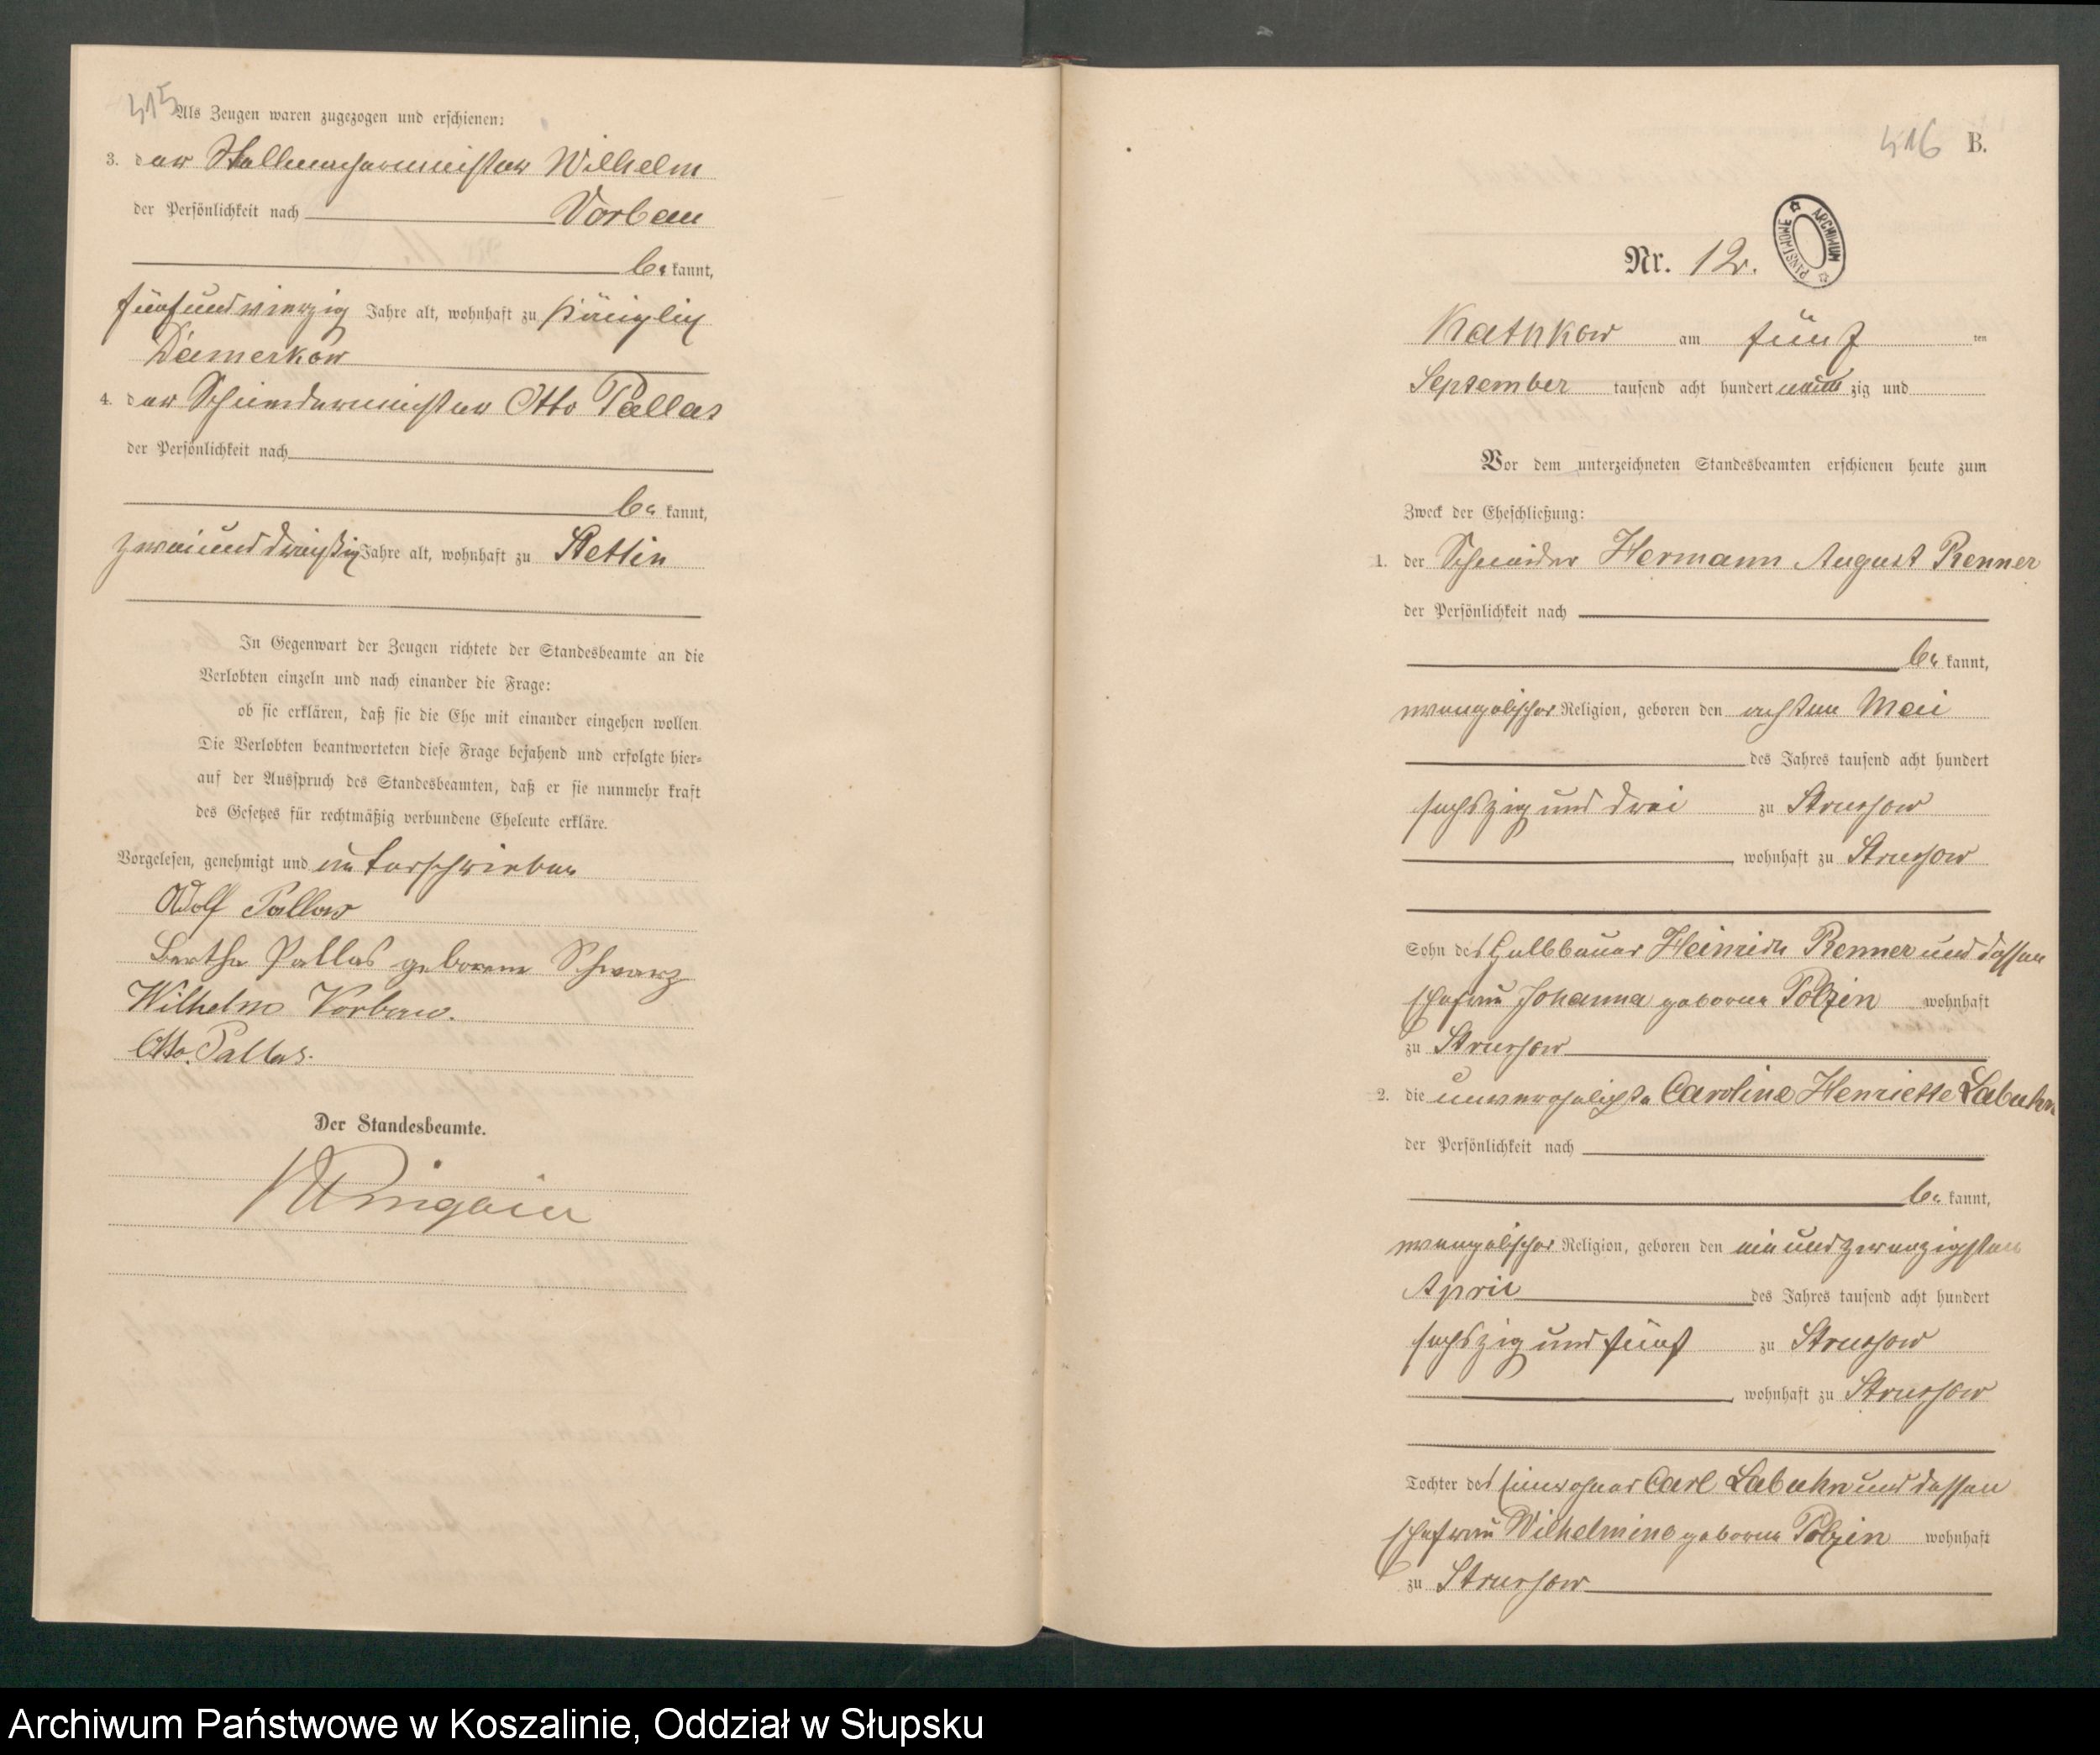 415
Als Zeugen waren zugezogen und erschienen:
3. der Stellmachermeister Wilhelm
der Persönlichkeit nach Vorbau
be kannt,
fünfundvierzig Jahre alt, wohnhaft zu Königlich
Damerkow
4. der Schneidermeister Otto Pallas
der Persönlichkeit nach
be kannt,
zweiunddreißig Jahre alt, wohnhaft zu Stettin
In Gegenwart der Zeugen richtete der Standesbeamte an die
Verlobten einzeln und nach einander die Frage:
ob sie erklären, daß sie die Ehe mit einander eingehen wollen.
Die Verlobten beantworteten diese Frage bejahend und erfolgte hier-
auf der Ausspruch des Standesbeamten, daß er sie nunmehr kraft
des Gesetzes für rechtmäßig verbundene Eheleute erkläre.
Vorgelesen, genehmigt und unterschrieben
Adolf Pallas
Bertha Pallas geborene Schwarz
Wilhelm Vorbau.
Otto Pallas.
Der Standesbeamte.
416 B.
Nr. 12.
ARCHIWUM PAŃSTWOWE
Kathkow am fünf ten
September tausend acht hundert neun zig und
Vor dem unterzeichneten Standesbeamten erschienen heute zum
Zweck der Eheschließung:
1. der Schneider Hermann August Renner
der Persönlichkeit nach
be kannt,
evangelischer Religion, geboren den achten Mai
des Jahres tausend acht hundert
sechszig und drei zu Strussow
wohnhaft zu Strussow
Sohn des Halbbauer Heinrich Renner und dessen
Ehefrau Johanna geborne Polzin wohnhaft
zu Strussow
2. die unverehelichte Caroline Henriette Labuhn
der Persönlichkeit nach
be kannt,
evangelischer Religion, geboren den einundzwanzigsten
April des Jahres tausend acht hundert
sechszig und fünf zu Strussow
wohnhaft zu Strussow
Tochter des Einwohner Carl Labuhn und dessen
Ehefrau Wilhelmine geborne Polzin wohnhaft
zu Strussow
Archiwum Państwowe w Koszalinie, Oddział w Słupsku